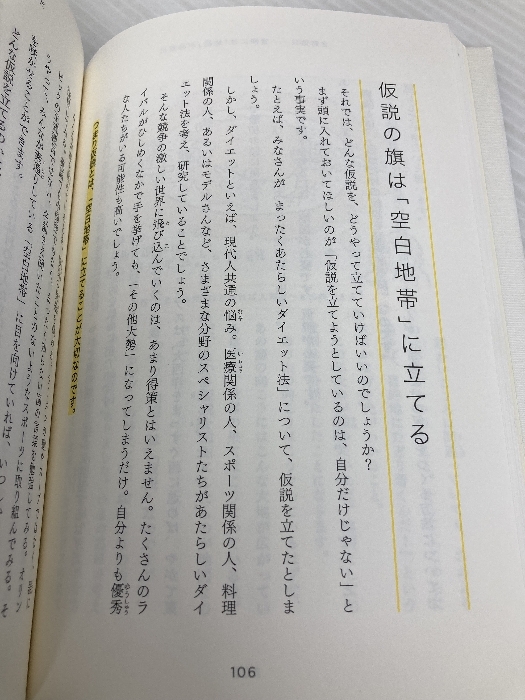 仮説の旗は「空白地帯」に立てる
それでは、どんな仮説を、どうやって立てていけばいいのでしょうか？
まず頭に入れておいてほしいのが「仮説を立てようとしているのは、自分だけじゃない」と
いう事実です。
たとえば、みなさんが「まったくあたらしいダイエット法」について、仮説を立てたとしま
しょう。
しかし、ダイエットといえば、現代人共通の悩み。医療関係の人、スポーツ関係の人、料理
関係の人、あるいはモデルさんなど、さまざまな分野のスペシャリストたちがあたらしいダイ
エット法を考え、研究していることでしょう。
そんな競争の激しい世界に飛び込んでいくのは、あまり得策とはいえません。たくさんのラ
イバルがひしめくなかで手を挙げても、「その他大勢」になってしまうだけ。自分よりも優秀
な人たちがいる可能性も高いでしょう。
つまり仮説とは、「空白地帯」に立てることが大切なのです。
106
に目を向けていれば、